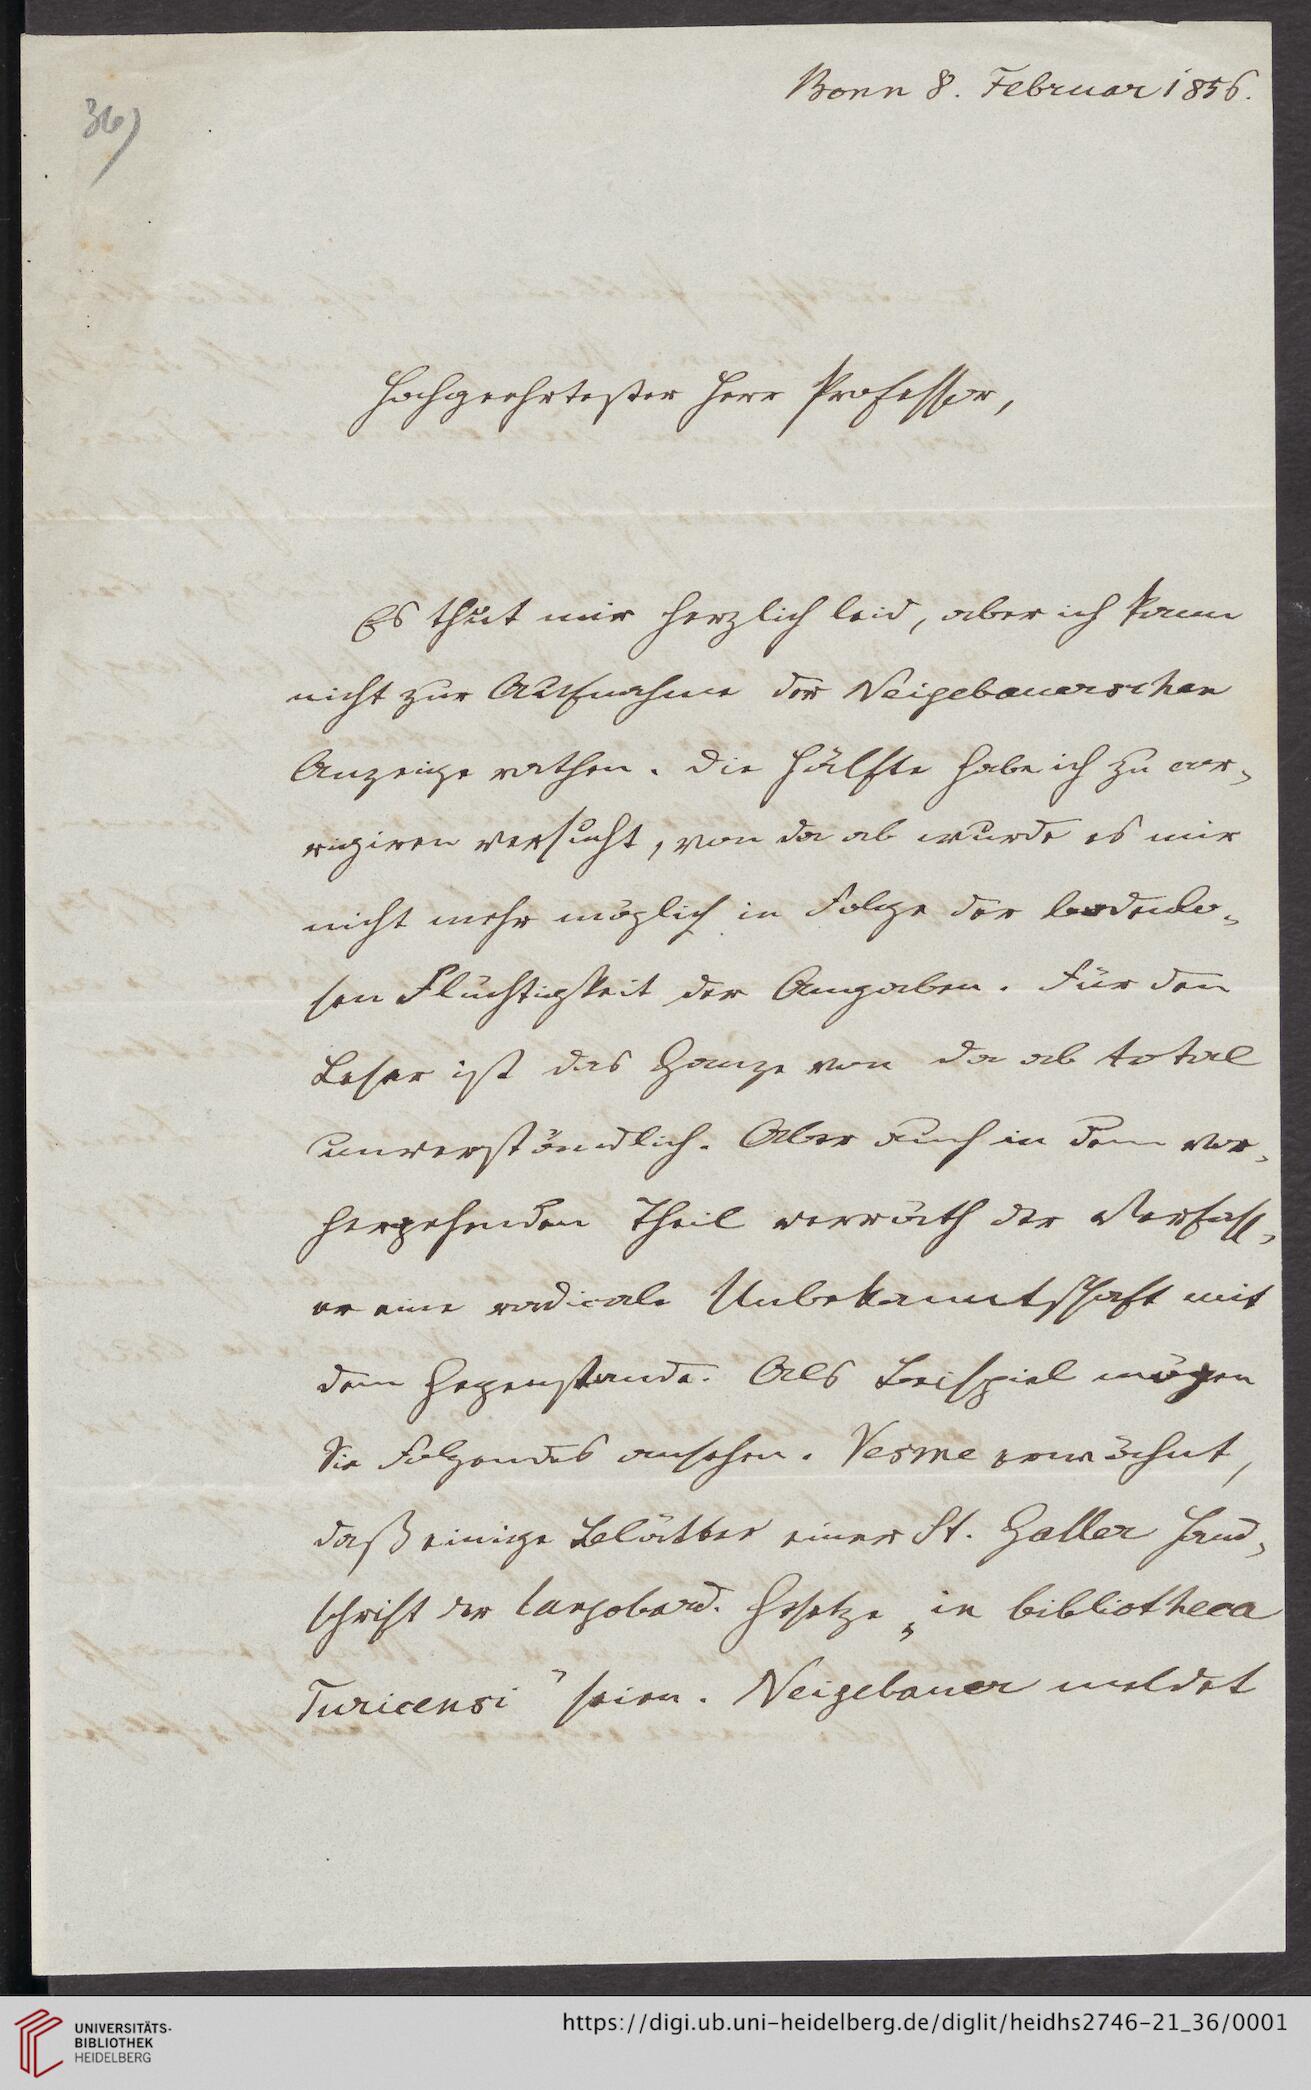 Bonn 8. Februar 1856.
36)
Hochgeehrtester Herr Professor,
Es thut mir herzlich leid, aber ich kann
nicht zur Aufnahme der Neigebauerschen
Anzeige rathen. Die Hälfte habe ich zu cor-
rigiren versucht, von da ab wurde es mir
nicht mehr möglich in Folge der bodenlo-
sen Flüchtigkeit der Angaben. Für den
Leser ist das Ganze von da ab total
unverständlich. Aber auch in dem vor-
hergehenden Theil verräth der Verfass-
er eine radicale Unbekanntschaft mit
dem Gegenstande. Als Beispiel mögen
Sie Folgendes ansehen. Vesme erwähnt,
daß einige Blätter einer St. Galler Hand-
schrift der langobard. Gesetze „in bibliotheca
Turicensi" seien. Neigebauer meldet
UNIVERSITÄTS-
BIBLIOTHEK
HEIDELBERG
https://digi.ub.uni-heidelberg.de/diglit/heidhs2746-21_36/0001